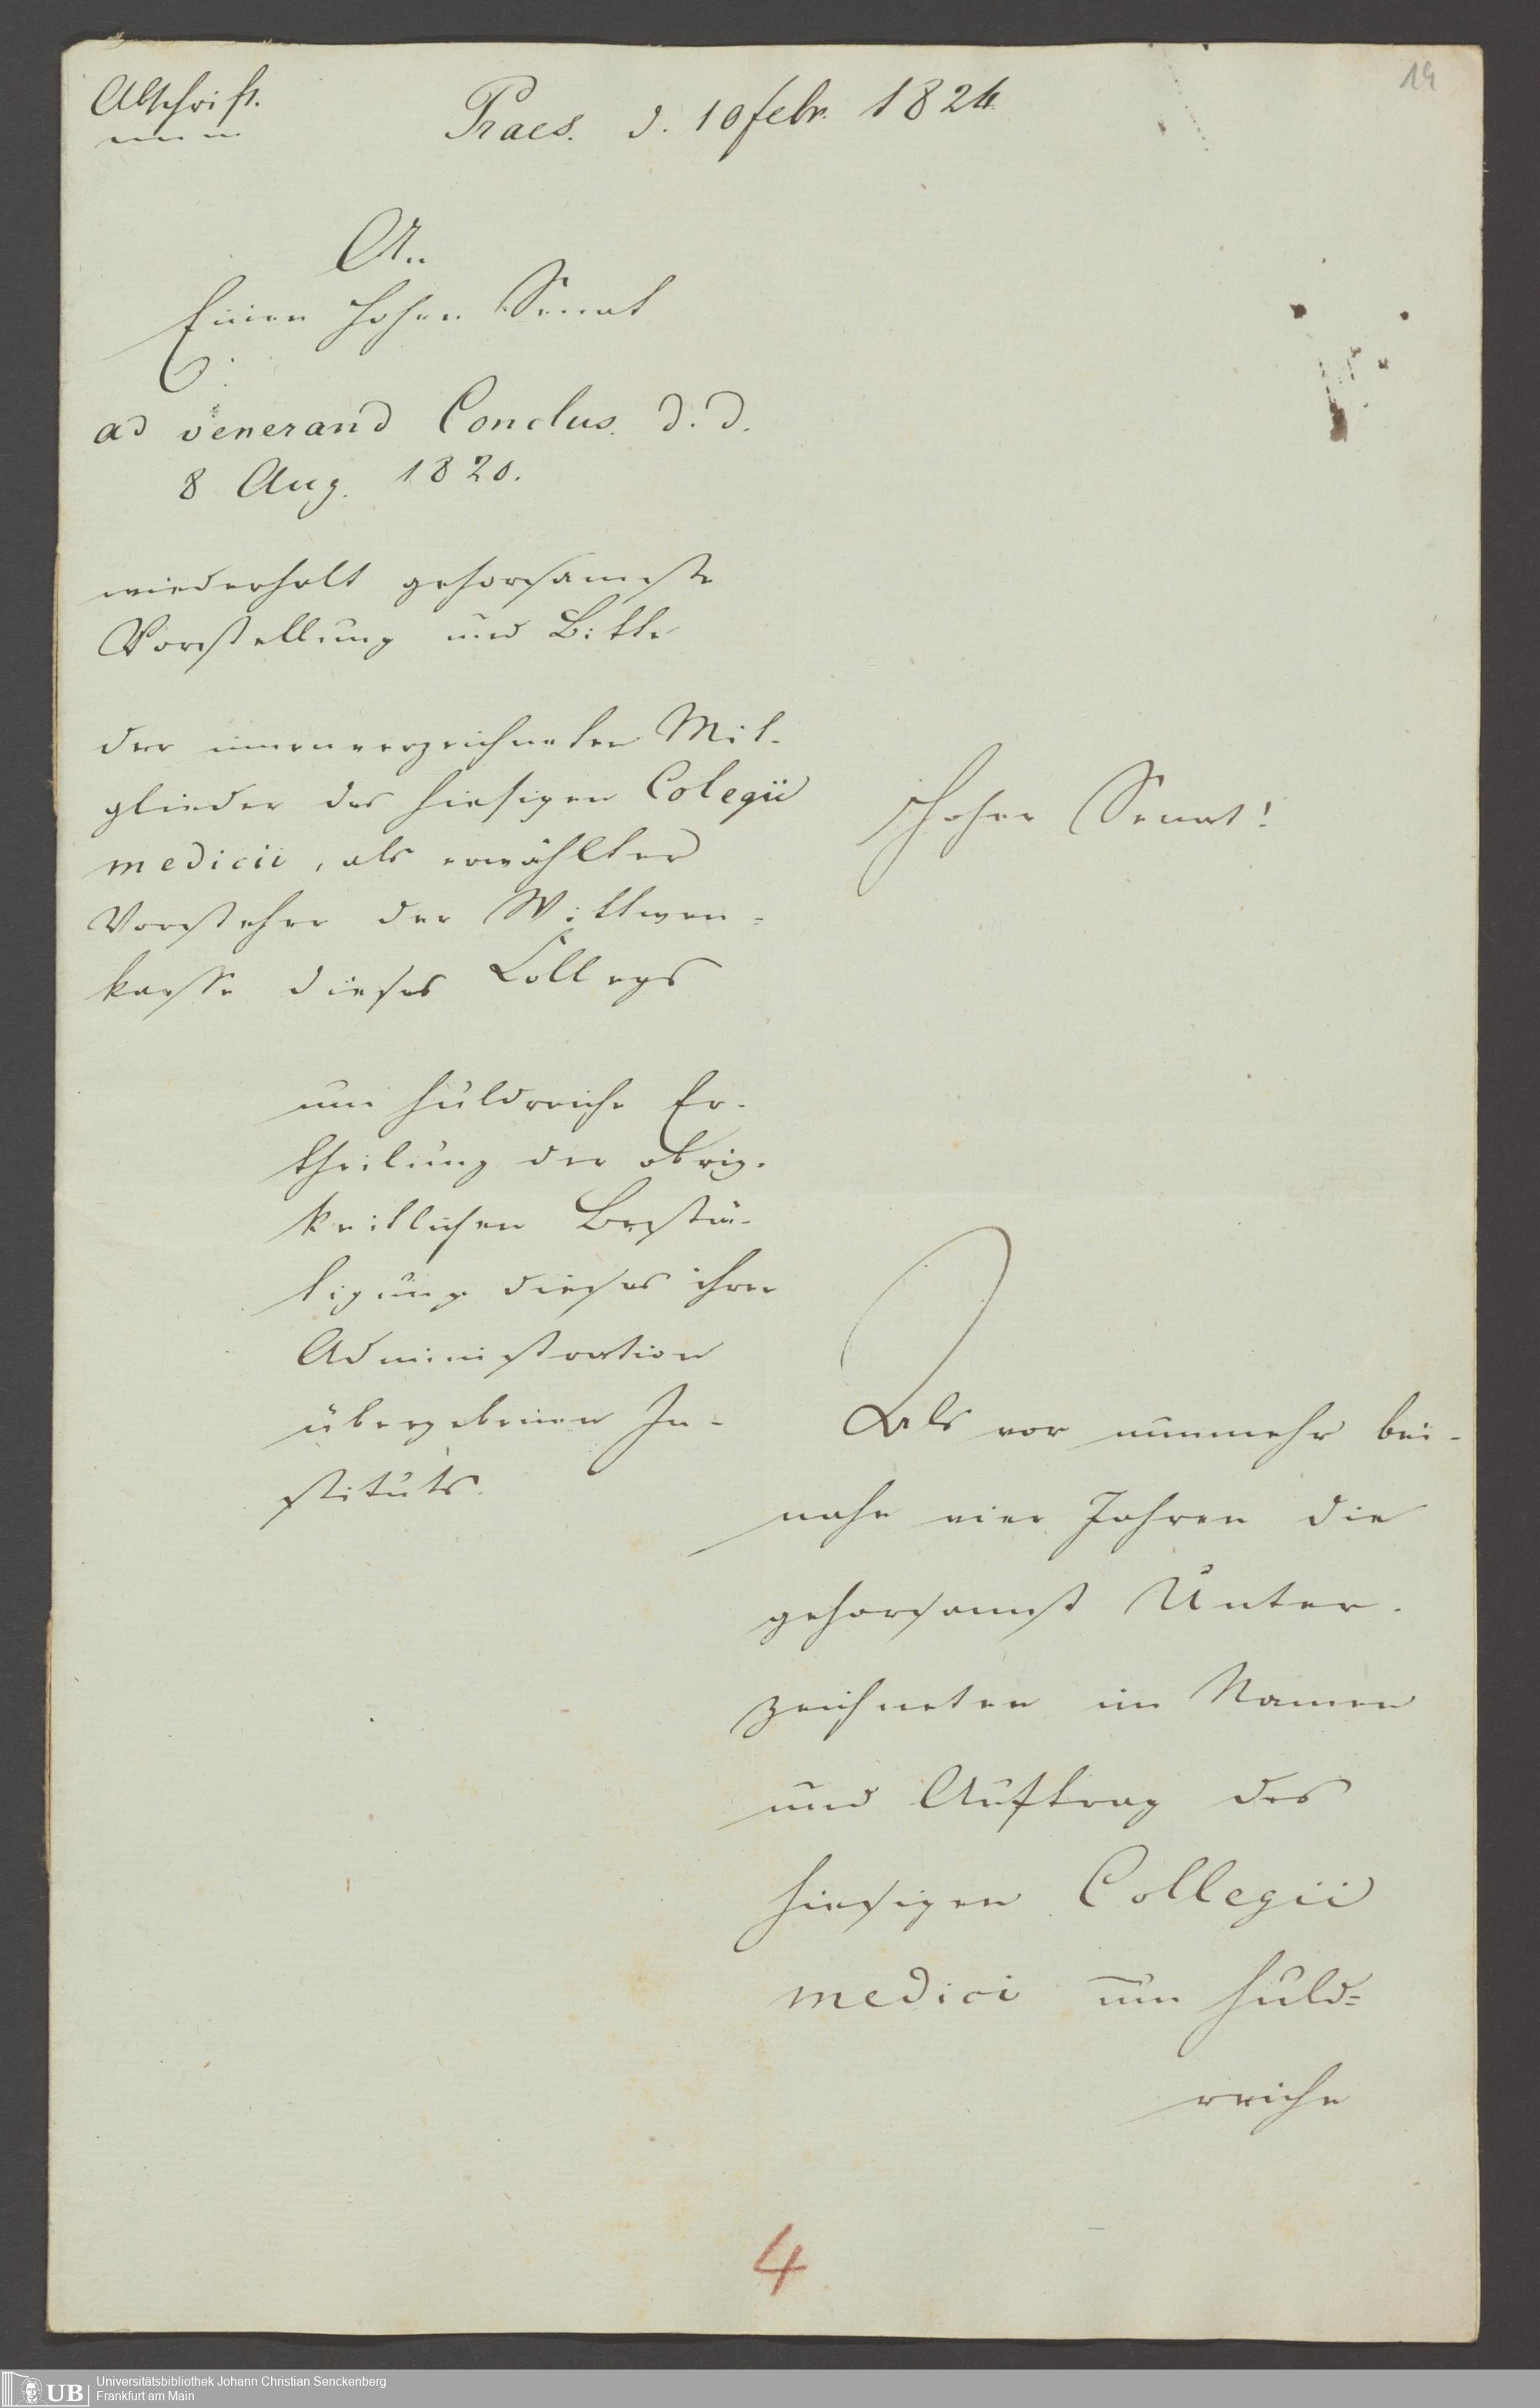 14
Abschrift.
Praes. d. 10 febr. 1824
An
Einen Hohen Senat
ad venerand Conclus. d. d.
8 Aug. 1820.
wiederholt gehorsamste
Vorstellung und Bitte
der innenverzeichneten Mit-
glieder des hiesigen Colegii
medicii, als erwählter
Vorsteher der Wittwen=
kasse dieses Collegs
um huldreiche Er-
theilung der obrig-
keitlichen Bestä-
tigung dieses ihrer
Administration
übergebenen In-
stituts.
Hoher Senat!
Als vor nunmehr bei-
nahe vier Jahren die
gehorsamst Unter-
zeichneten im Namen
und Auftrag des
hiesigen Collegii
medici um huld=
reiche
4
UB
Universitätsbibliothek Johann Christian Senckenberg
Frankfurt am Main